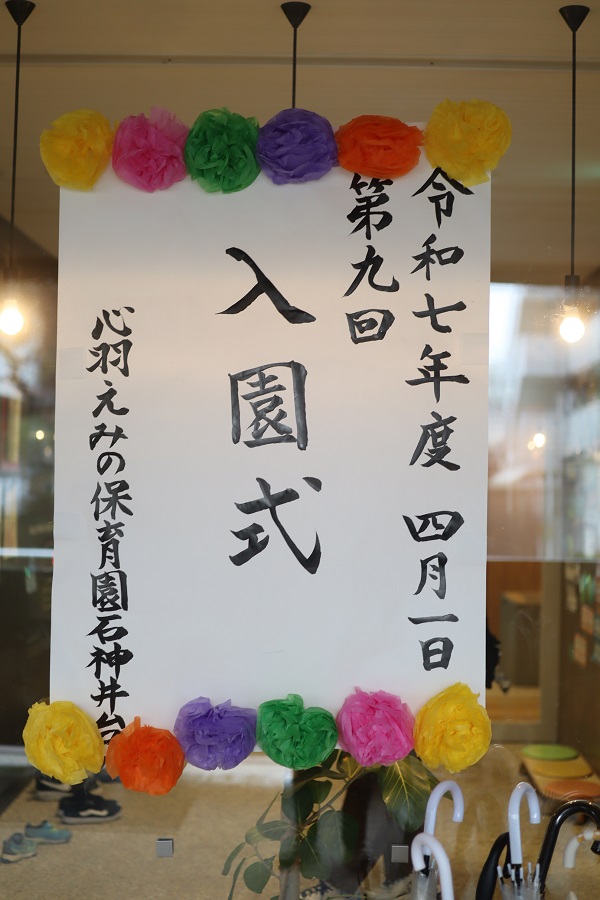 令和七年度 四月一日
第九回
入園式
心羽えみの保育園石神井台